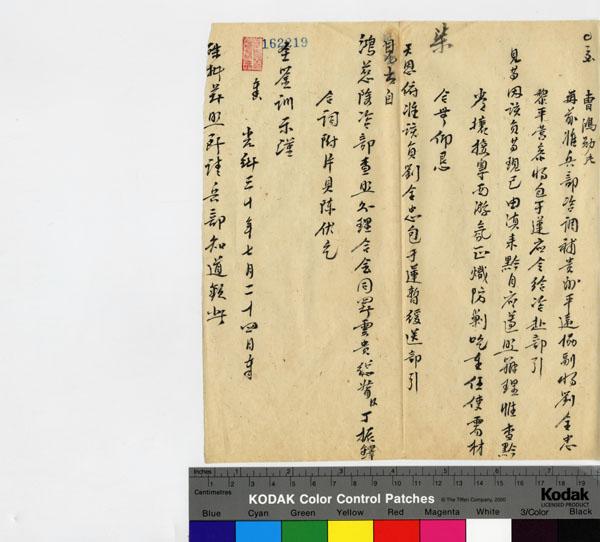 曹鴻勛片
再前准兵部咨調補貴州平遠協副將劉全忠
黎平營參將包于蓮應令給咨赴部引
見當因該員等現已由滇來黔自應遵照辦理惟查黔
省壤接粵西游氛正熾防剿吃重任使需材
合無仰懇
天恩俯准該員劉全忠包于蓮暫緩送部引
見出自
鴻慈除咨部查照外理合會同署雲貴總督臣丁振鐸
合詞附片具陳伏乞
聖鑒訓示謹
奏
光緒三十年七月二十四日奉
硃批著照所請兵部知道欽此
柒
162219
Inches
1 2 3 4 5 6 7
Centimetres
1 2 3 4 5 6 7 8 9 10 11 12 13 14 15 16 17 18 19
KODAK Color Control Patches
© The Tiffen Company, 2000
Kodak
LICENSED PRODUCT
Blue Cyan Green Yellow Red Magenta White 3/Color Black